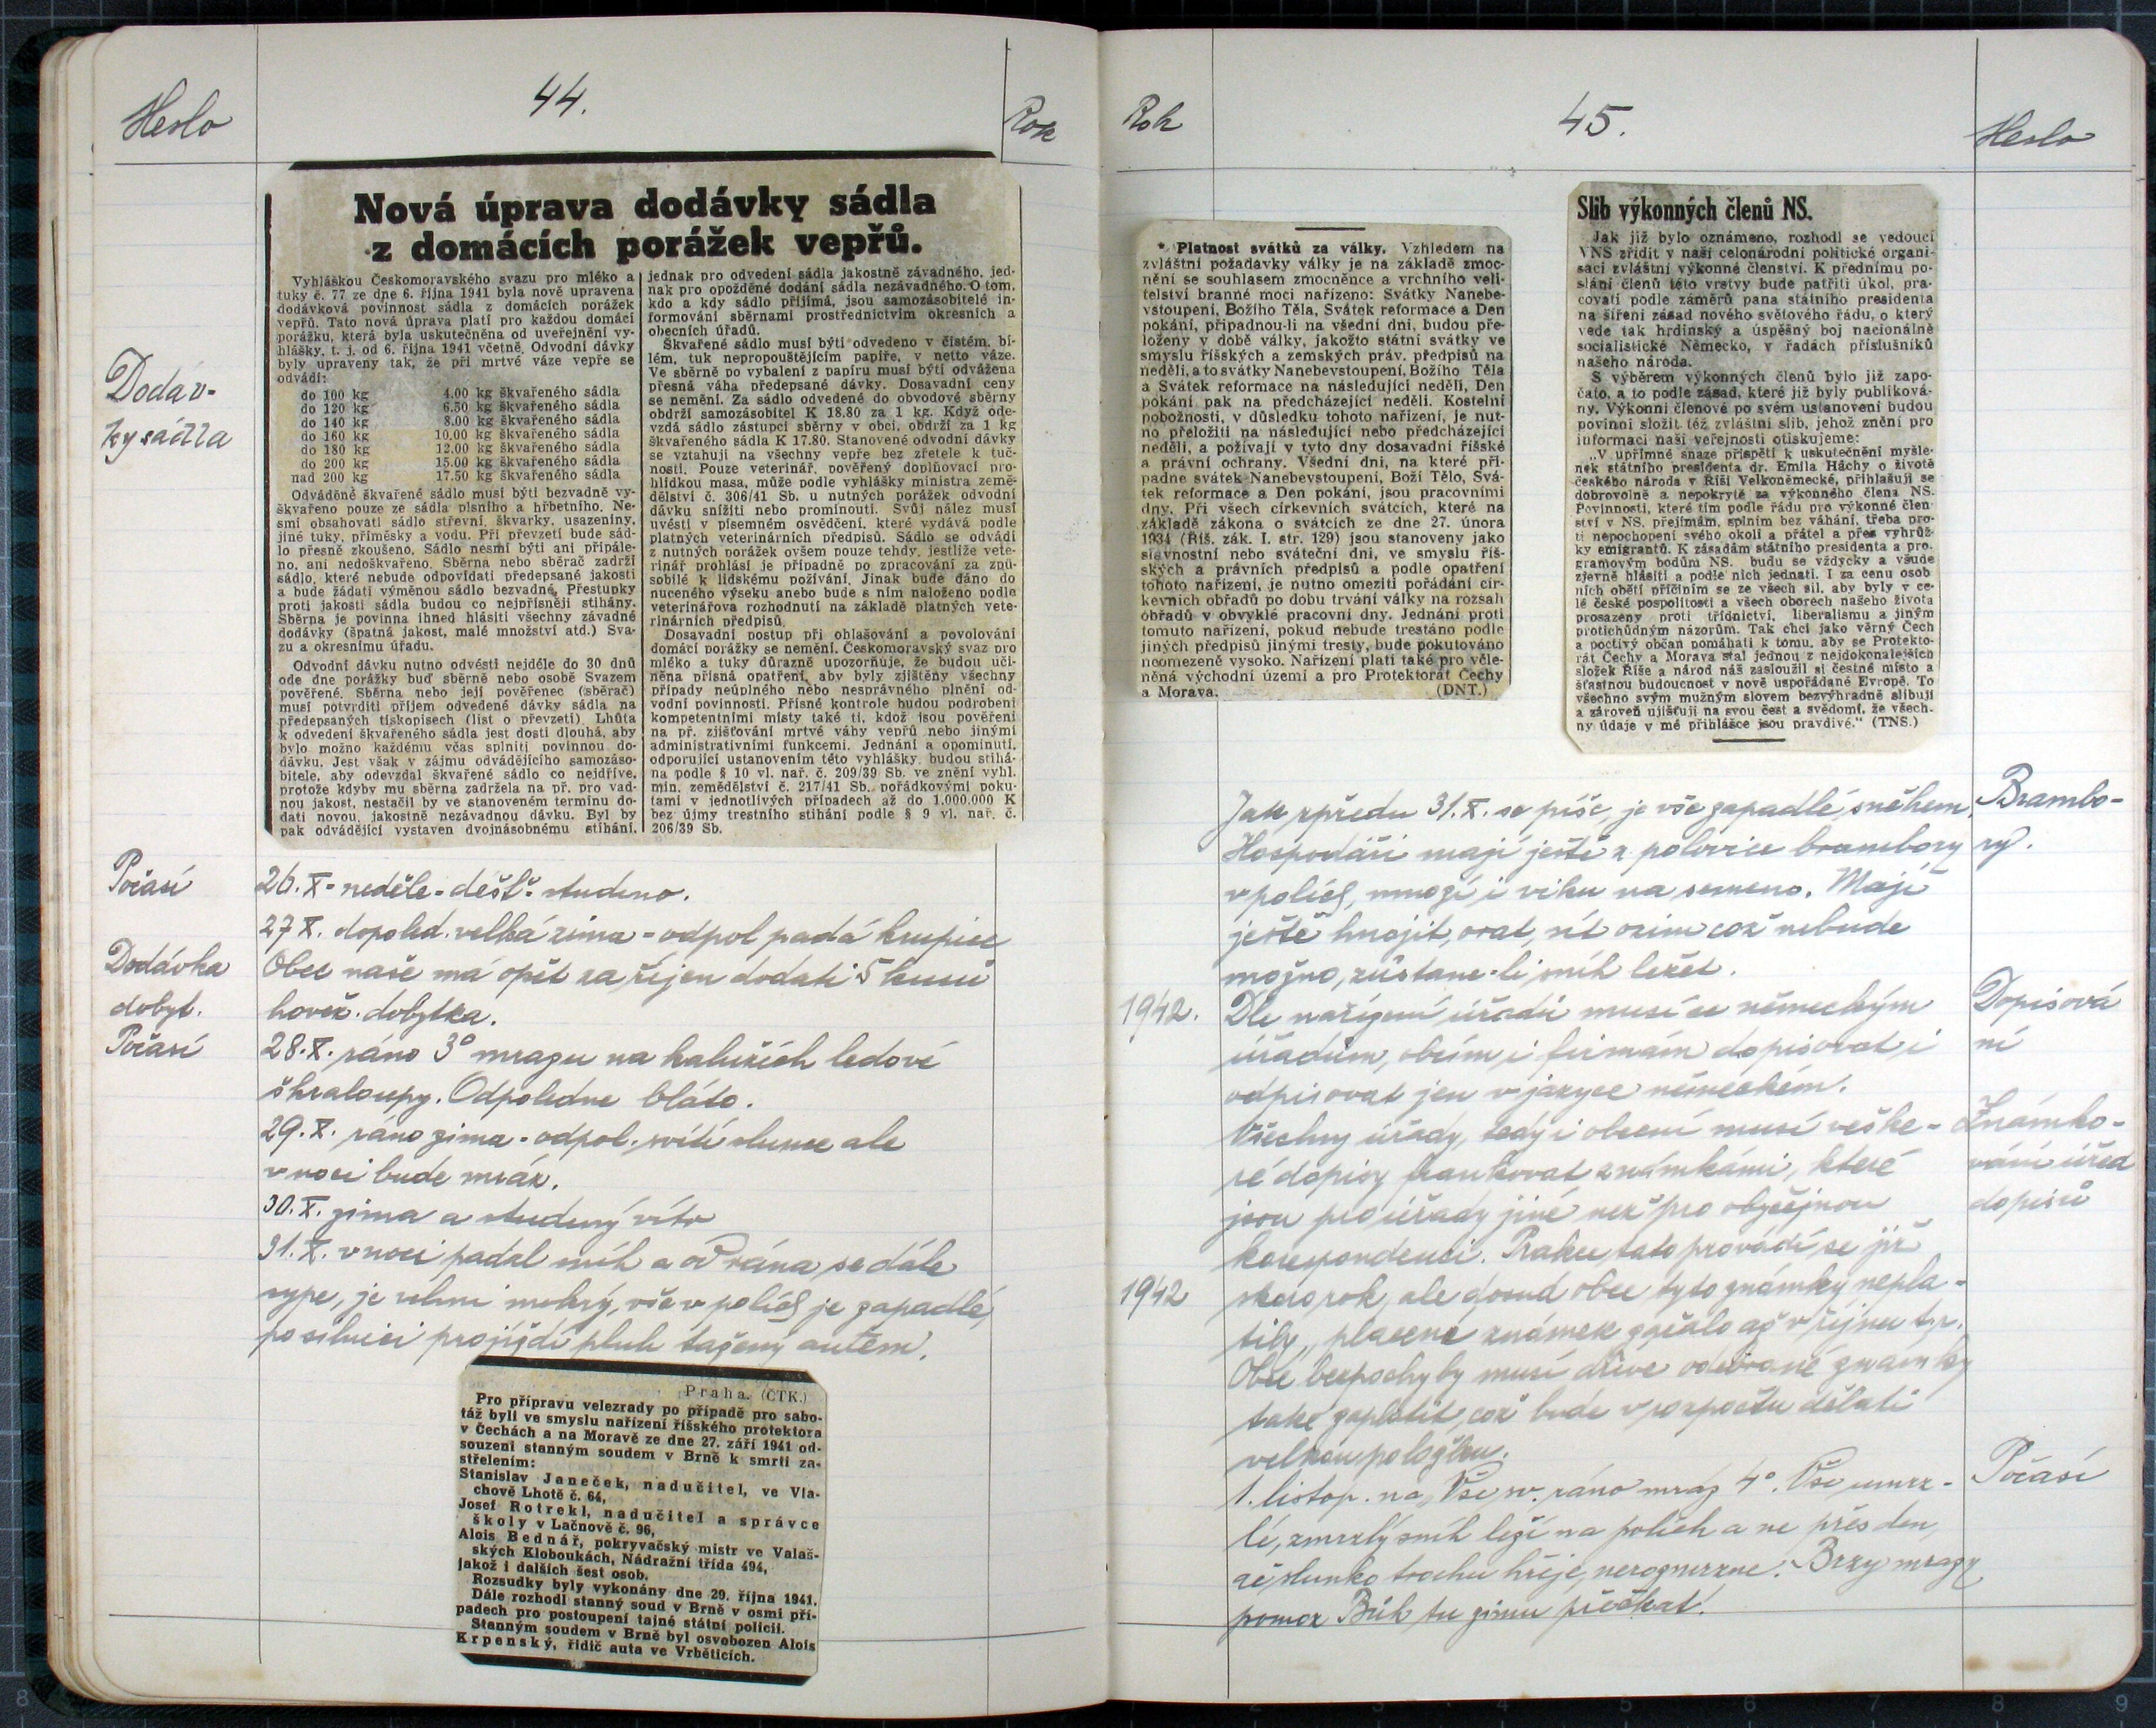 Heslo
44.
Rok
Nová úprava dodávky sádla
z domácích porážek vepřů.
Vyhláškou Českomoravského svazu pro mléko a
tuky č. 77 ze dne 6. října 1941 byla nově upravena
dodávková povinnost sádla z domácích porážek
vepřů. Tato nová úprava platí pro každou domácí
porážku, která byla uskutečněna od uveřejnění vy-
hlášky, t. j. od 6. října 1941 včetně. Odvodní dávky
byly upraveny tak, že při mrtvé váze vepře se
odvádí:
do 100 kg 4.00 kg škvařeného sádla
do 120 kg 6.50 kg škvařeného sádla
do 140 kg 8.00 kg škvařeného sádla
do 160 kg 10.00 kg škvařeného sádla
do 180 kg 12.00 kg škvařeného sádla
do 200 kg 15.00 kg škvařeného sádla
nad 200 kg 17.50 kg škvařeného sádla
Odváděné škvařené sádlo musí býti bezvadně vy-
škvařeno pouze ze sádla plsního a hřbetního. Ne-
smí obsahovati sádlo střevní, škvarky, usazeniny,
jiné tuky, příměsky a vodu. Při převzetí bude sád-
lo přesně zkoušeno. Sádlo nesmí býti ani připále-
no, ani nedoškvařeno. Sběrna nebo sběrač zadrží
sádlo, které nebude odpovídati předepsané jakosti
a bude žádati výměnou sádlo bezvadné. Přestupky
proti jakosti sádla budou co nejpřísněji stihány.
Sběrna je povinna ihned hlásiti všechny závadné
dodávky (špatná jakost, malé množství atd.) Sva-
zu a okresnímu úřadu.
Odvodní dávku nutno odvésti nejdéle do 30 dnů
ode dne porážky buď sběrně nebo osobě Svazem
pověřené. Sběrna nebo její pověřenec (sběrač)
musí potvrditi příjem odvedené dávky sádla na
předepsaných tiskopisech (list o převzetí). Lhůta
k odvedení škvařeného sádla jest dosti dlouhá, aby
bylo možno každému včas splniti povinnou do-
dávku. Jest však v zájmu odvádějícího samozáso-
bitele, aby odevzdal škvařené sádlo co nejdříve,
protože kdyby mu sběrna zadržela na př. pro vad-
nou jakost, nestačil by ve stanoveném termínu do-
dati novou, jakostně nezávadnou dávku. Byl by
pak odvádějící vystaven dvojnásobnému stíhání,
jednak pro odvedení sádla jakostně závadného, jed-
nak pro opožděné dodání sádla nezávadného. O tom,
kdo a kdy sádlo přijímá, jsou samozásobitelé in-
formováni sběrnami prostřednictvím okresních a
obecních úřadů.
Škvařené sádlo musí býti odvedeno v čistém, bí-
lém, tuk nepropouštějícím papíře, v netto váze.
Ve sběrně po vybalení z papíru musí býti odvážena
přesná váha předepsané dávky. Dosavadní ceny
se nemění. Za sádlo odvedené do obvodové sběrny
obdrží samozásobitel K 18.80 za 1 kg. Když ode-
vzdá sádlo zástupci sběrny v obci, obdrží za 1 kg
škvařeného sádla K 17.80. Stanovené odvodní dávky
se vztahují na všechny vepře bez zřetele k tuč-
nosti. Pouze veterinář, pověřený doplňovací pro-
hlídkou masa, může podle vyhlášky ministra země-
dělství č. 306/41 Sb. u nutných porážek odvodní
dávku snížiti nebo prominouti. Svůj nález musí
uvésti v písemném osvědčení, které vydává podle
platných veterinárních předpisů. Sádlo se odvádí
z nutných porážek ovšem pouze tehdy, jestliže vete-
rinář prohlásí je případně po zpracování za způ-
sobilé k lidskému požívání. Jinak bude dáno do
nuceného výseku anebo bude s ním naloženo podle
veterinářova rozhodnutí na základě platných vete-
rinárních předpisů.
Dosavadní postup při ohlašování a povolování
domácí porážky se nemění. Českomoravský svaz pro
mléko a tuky důrazně upozorňuje, že budou uči-
něna přísná opatření, aby byly zjištěny všechny
případy neúplného nebo nesprávného plnění od-
vodní povinnosti. Přísné kontrole budou podrobeni
kompetentními místy také ti, kdož jsou pověřeni
na př. zjišťování mrtvé váhy vepřů nebo jinými
administrativními funkcemi. Jednání a opominutí,
odporující ustanovením této vyhlášky, budou stíhá-
na podle § 10 vl. nař. č. 209/39 Sb. ve znění vyhl.
min. zemědělství č. 217/41 Sb. pořádkovými poku-
tami v jednotlivých případech až do 1.000.000 K
bez újmy trestního stíhání podle § 9 vl. nař. č.
206/39 Sb.
Dodáv-
ky sádla
Počasí
26. X - neděle - déšť - studeno.
27 X. dopoled. velká zima - odpol padá krupice
Dodávka
Obec naše má opět za říjen dodati 5 kusů
dobyt.
hověz. dobytka.
Počasí
28. X. ráno 3° mrazu na kalužích ledové
škraloupy. Odpoledne bláto.
29. X. ráno zima - odpol. svítí slunce ale
v noci bude mráz.
30. X. zima a studený vítr
31. X. v noci padal sníh a od rána se dále
sype, je velmi mokrý, vše v polích je zapadlé,
po silnici projíždí pluh tažený autem.
Praha. (ČTK.)
Pro přípravu velezrady po případě pro sabo-
táž byli ve smyslu nařízení říšského protektora
v Čechách a na Moravě ze dne 27. září 1941 od-
souzeni stanným soudem v Brně k smrti za-
střelením:
Stanislav Janeček, nadučitel, ve Vla-
chově Lhotě č. 64,
Josef Rotrekl, nadučitel a správce
školy v Lačnově č. 96,
Alois Bednář, pokryvačský mistr ve Valaš-
ských Kloboukách, Nádražní třída 494,
jakož i dalších šest osob.
Rozsudky byly vykonány dne 29. října 1941.
Dále rozhodl stanný soud v Brně v osmi pří-
padech pro postoupení tajné státní policii.
Stanným soudem v Brně byl osvobozen Alois
Krpenský, řidič auta ve Vrběticích.
Rok
45.
Heslo
* Platnost svátků za války. Vzhledem na
zvláštní požadavky války je na základě zmoc-
nění se souhlasem zmocněnce a vrchního veli-
telství branné moci nařízeno: Svátky Nanebe-
vstoupení, Božího Těla, Svátek reformace a Den
pokání, připadnou-li na všední dni, budou pře-
loženy v době války, jakožto státní svátky ve
smyslu říšských a zemských práv. předpisů na
neděli, a to svátky Nanebevstoupení, Božího Těla
a Svátek reformace na následující neděli, Den
pokání pak na předcházející neděli. Kostelní
pobožnosti, v důsledku tohoto nařízení, je nut-
no přeložiti na následující nebo předcházející
neděli, a požívají v tyto dny dosavadní říšské
a právní ochrany. Všední dni, na které při-
padne svátek Nanebevstoupení, Boží Tělo, Svá-
tek reformace a Den pokání, jsou pracovními
dny. Při všech církevních svátcích, které na
základě zákona o svátcích ze dne 27. února
1934 (Říš. zák. I. str. 129) jsou stanoveny jako
slavnostní nebo sváteční dni, ve smyslu říš-
ských a právních předpisů a podle opatření
tohoto nařízení, je nutno omeziti pořádání cír-
kevních obřadů po dobu trvání války na rozsah
obřadů v obvyklé pracovní dny. Jednání proti
tomuto nařízení, pokud nebude trestáno podle
jiných předpisů jinými tresty, bude pokutováno
neomezeně vysoko. Nařízení platí také pro včle-
něná východní území a pro Protektorát Čechy
a Morava. (DNT.)
Slib výkonných členů NS.
Jak již bylo oznámeno, rozhodl se vedoucí
VNS zřídit v naší celonárodní politické organi-
saci zvláštní výkonné členství. K přednímu po-
slání členů této vrstvy bude patřiti úkol, pra-
covati podle záměrů pana státního presidenta
na šíření zásad nového světového řádu, o který
vede tak hrdinský a úspěšný boj nacionálně
socialistické Německo, v řadách příslušníků
našeho národa.
S výběrem výkonných členů bylo již zapo-
čato, a to podle zásad, které již byly publiková-
ny. Výkonní členové po svém ustanovení budou
povinni složit též zvláštní slib, jehož znění pro
informaci naší veřejnosti otiskujeme:
„V upřímné snaze přispěti k uskutečnění myšle-
nek státního presidenta dr. Emila Háchy o životě
českého národa v Říši Velkoněmecké, přihlašuji se
dobrovolně a nepokrytě za výkonného člena NS.
Povinnosti, které tím podle řádu pro výkonné člen-
ství v NS. přejímám, splním bez váhání, třeba pro-
ti nepochopení svého okolí a přátel a přes vyhrůž-
ky emigrantů. K zásadám státního presidenta a pro-
gramovým bodům NS. budu se vždycky a všude
zjevně hlásiti a podle nich jednati. I za cenu osob-
ních obětí přičiním se ze všech sil, aby byly v ce-
lé české pospolitosti a všech oborech našeho života
prosazeny proti třídnictví, liberalismu a jiným
protichůdným názorům. Tak chci jako věrný Čech
a poctivý občan pomáhati k tomu, aby se Protekto-
rát Čechy a Morava stal jednou z nejdokonalejších
složek Říše a národ náš zasloužil si čestné místo a
šťastnou budoucnost v nově uspořádané Evropě. To
všechno svým mužným slovem bezvýhradně slibuji
a zároveň ujišťuji na svou čest a svědomí, že všech-
ny údaje v mé přihlášce jsou pravdivé.“ (TNS.)
Jak zpředu 31. X. se píše, je vše zapadlé sněhem.
Brambo-
Hospodáři mají ještě z polovice brambory
ry.
v polích, mnozí i viku na semeno. Mají
ještě hnojit, orat, sít ozim což nebude
možno, zůstane-li sníh ležet.
1942.
Dle nařízení úřadů musí se německým
Dopisová
úřadům, obcím i firmám dopisovat i
ní
odpisovat jen v jazyce německém.
Všechny úřady, tedy i obecní musí veške-
Známko-
ré dopisy frankovat známkámi, které
vání úřed
jsou pro úřady jiné než pro obyčejnou
dopisů
korespondenci. Prakse tato provádí se již
1942
skoro rok, ale dosud obce tyto známky nepla-
tily, placení známek začalo až v říjnu t.r.
Obec bezpochyby musí dříve odebrané známky
také zaplatit, což bude v rozpočtu dělati
velkou položku.
1. listop. na Vše sv. ráno mráz 4°. Vše umrz-
Počasí
lé, zmrzlý sníh leží na polích a ne přes den,
ač slunko trochu hřeje, nerozmrzne. Brzy mrazy,
pomoz Bůh tu zimu přečkat!